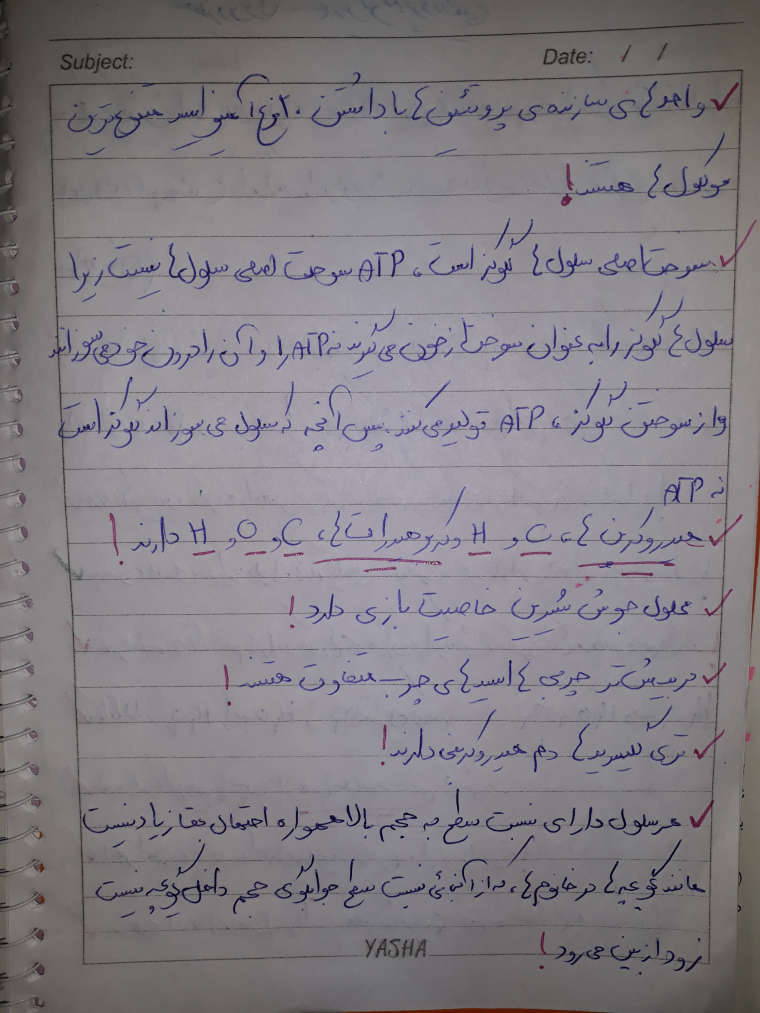 Subject: Date: / /
واحدهای سازنده‌ی پروتئین ها با داشتن ۲۰ نوع آمینو اسید متنوع ترین
مولکول ها هستند!
سوخت اصلی سلول ها گلوکز است، ATP سوخت اصلی سلول ها نیست زیرا
سلول ها گلوکز را به عنوان سوخت از خون می گیرند نه ATP را و آن را درون خود می سوزانند
و از سوختن گلوکز، ATP تولید می کنند. پس آنچه که سلول می سوزاند گلوکز است
نه ATP
هیدروکربن ها، C و H و کربوهیدرات ها، C و O و H دارند!
محلول جوش شیرین خاصیت بازی دارد!
در بیشتر چربی ها اسیدهای چرب متفاوت هستند!
تری گلیسریدها دم هیدروکربنی دارند!
هر سلول دارای نسبت سطح به حجم بالا همواره احتمال بقا زیاد نیست
مانند گویچه ها در خانوم ها، که از آنجائی نسبت سطح جوابگوی حجم داخل گویچه نیست
زود از بین می رود!
YASHA